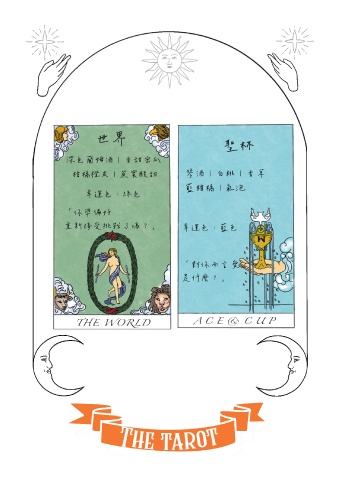 世界
深色蘭姆酒 | 香甜蜜瓜
柑橘橙皮 | 莫實酸甜
幸運色:綠色
「你準備好
重新接受挑戰了嗎?」
THE WORLD
聖杯
琴酒 | 白桃 | 香草
藍柑橘 | 氣泡
幸運色:藍色
「對你而言 愛
是什麼?」
ACE of CUP
THE TAROT